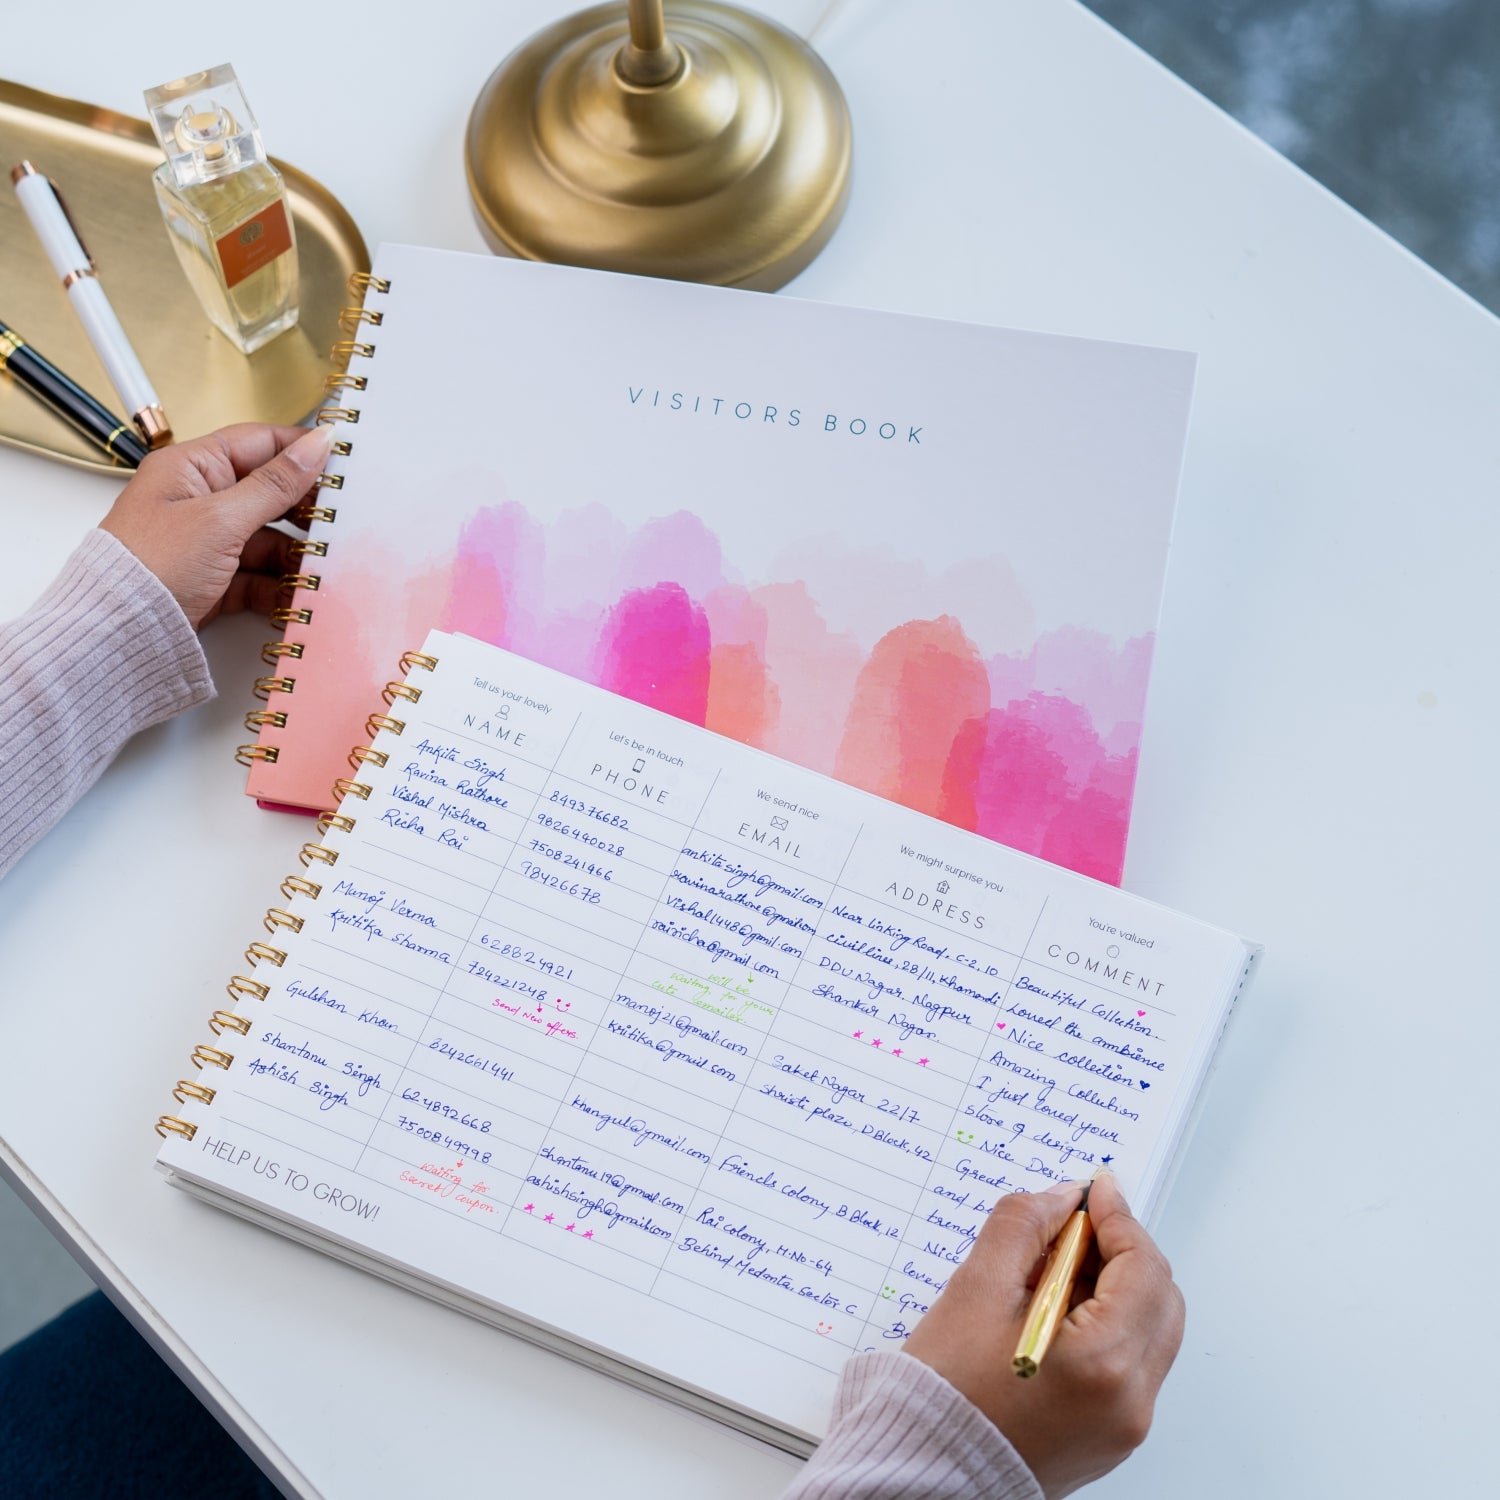 VISITORS BOOK
Tell us your lovely
NAME
Let's be in touch
PHONE
We send nice
EMAIL
We might surprise you
ADDRESS
You're valued
COMMENT
Ankita Singh
Ravina Rathore
Vishal Mishra
Richa Rai
Manoj Verma
Kritika Sharma
Gulshan Khan
Shantanu Singh
Ashish Singh
849376682
9826440028
7508241466
98426678
628824921
724221248
Send New offers.
8242661441
624892668
7500849998
Waiting for
Secret coupon.
ankitasingh@gmail.com
ravinarathore@gmail.com
Vishal1448@gmil.com
rairicha@gmail.com
will be
Waiting for your
cute emailer.
manoj21@gmail.com
Kritika@gmail.com
khangul@gmail.com
shantanu19@gmail.com
ashishsingh@gmail.com
Near linking Road, C-2, 10
Civil lines, 28/11, Khamardi
DDU Nagar, Nagpur
Shankur Nagar.
Saket Nagar 22/7
Shristi plaza, D Block, 42
Friends colony B Block, 12
Rai colony, H.No-64
Behind Medanta, Sector C
Beautiful Collection.
Loved the ambience
Nice collection
Amazing Collection
I just loved your
store of designs
Nice Desig
Great
and be
trendy
Nice
loved
Gre
Be
HELP US TO GROW!